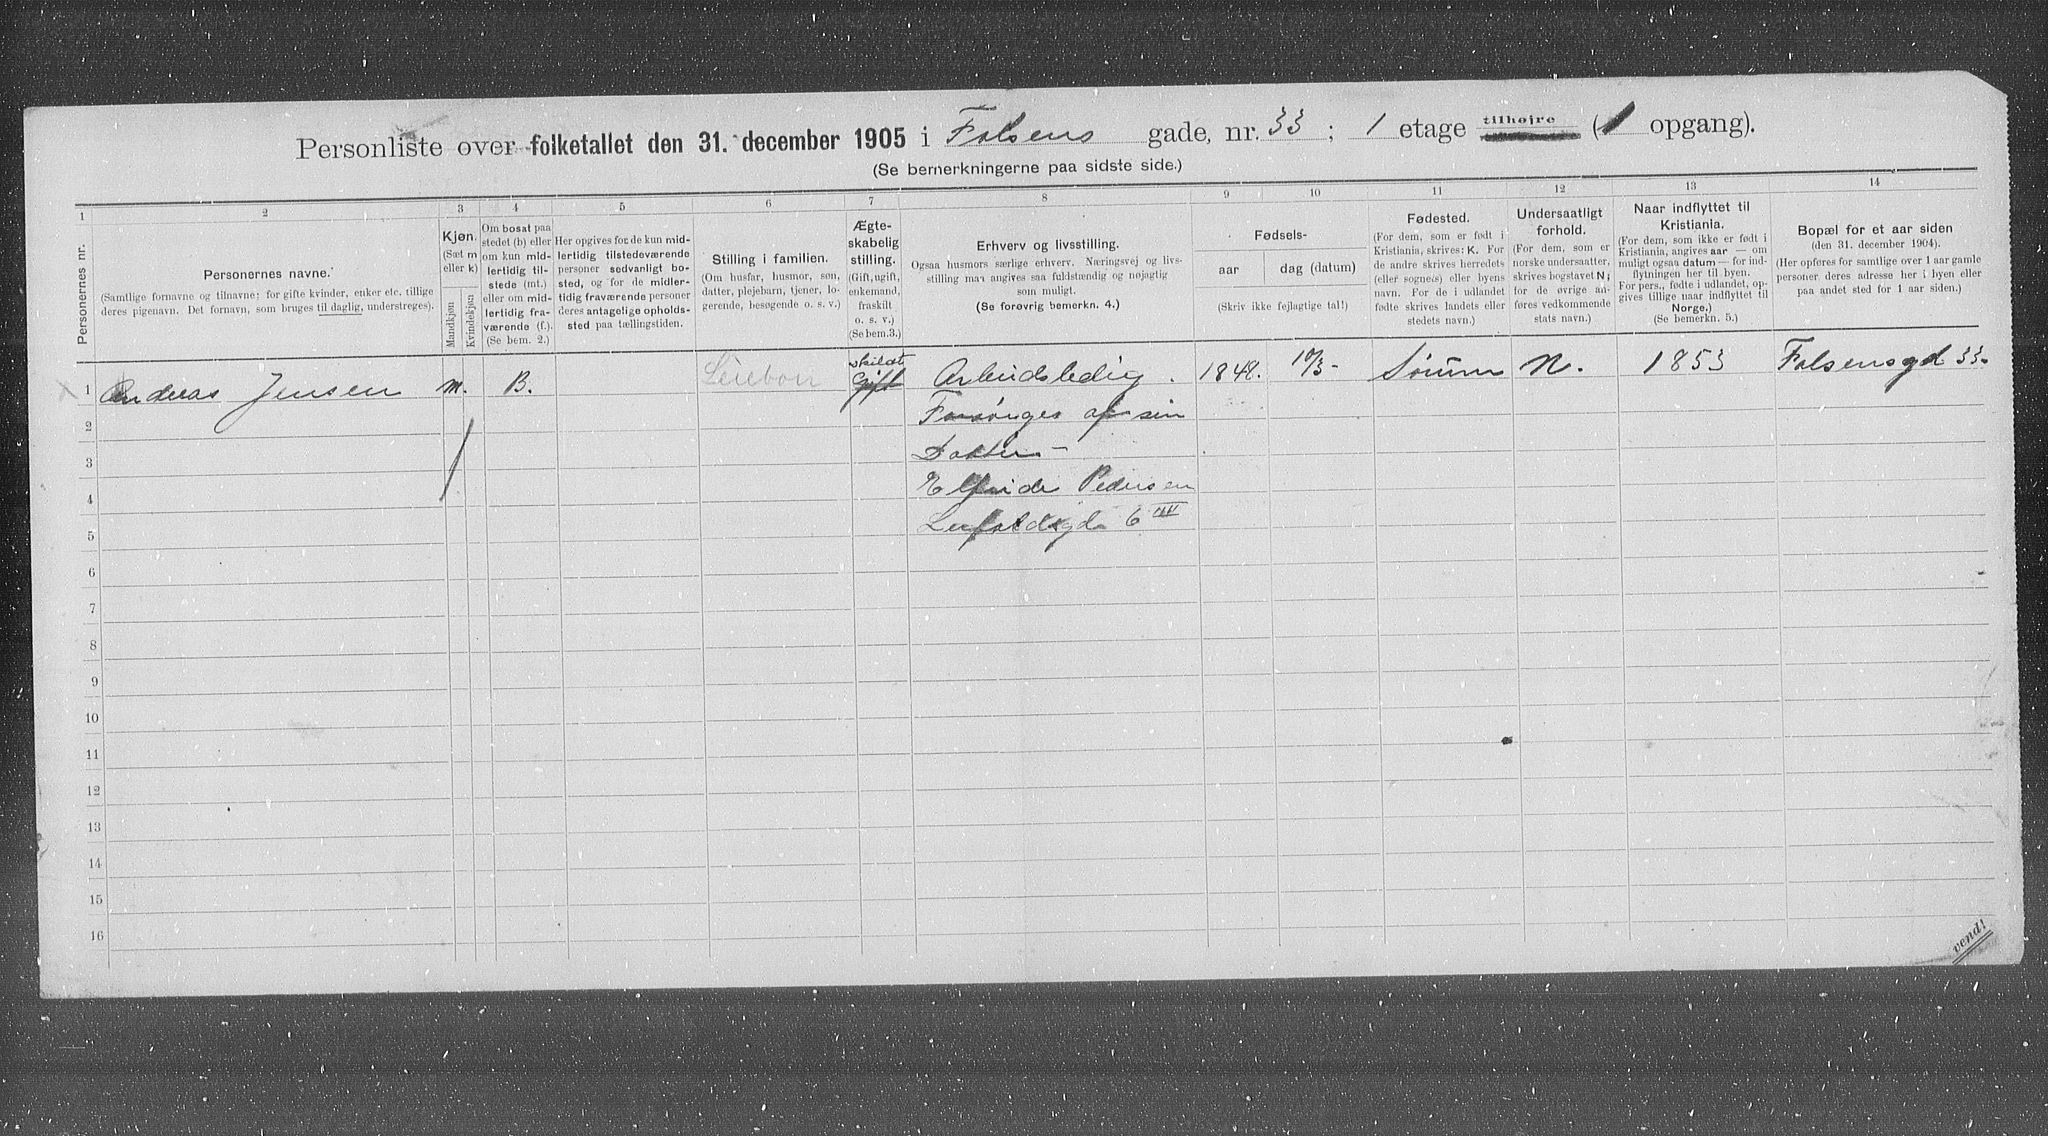 Personliste over folketallet den 31. december 1905 i Falsens gade, nr. 33 ; 1 etage tilhøjre ( opgang).
(Se bemerkningerne paa sidste side.)
1 2 3 4 5 6 7 8 9 10 11 12 13 14
Personernes nr.
Personernes navne.
(Samtlige fornavne og tilnavne; for gifte kvinder, enker etc. tillige
deres pigenavn. Det fornavn, som bruges til daglig, understreges).
Kjøn.
(Sæt m
eller k)
Mandkjøn
Kvindekjøn
Om bosat paa
stedet (b) eller
om kun mid-
lertidig til-
stede (mt.)
eller om mid-
lertidig fra-
værende (f.).
(Se bem. 2.)
Her opgives for de kun mid-
lertidig tilstedeværende
personer sedvanligt bo-
sted, og for de midler-
tidig fraværende personer
deres antagelige opholds-
sted paa tællingstiden.
Stilling i familien.
(Om husfar, husmor, søn,
datter, plejebarn, tjener, lo-
gerende, besøgende o. s. v.)
Ægte-
skabelig
stilling.
(Gift, ugift,
enkemand,
fraskilt
o. s. v.)
(Se bem.3.)
Erhverv og livsstilling.
Ogsaa husmors særlige erhverv. Næringsvej og livs-
stilling maa angives saa fuldstændig og nøjagtig
som muligt.
(Se forøvrig bemerkn. 4.)
Fødsels-
aar
dag (datum)
(Skriv ikke fejlagtige tal!)
Fødested.
(For dem, som er født i
Kristiania, skrives: K. For
de andre skrives herredets
(eller sognets) eller byens
navn. For de i udlandet
fødte skrives landets eller
stedets navn.)
Undersaatligt
forhold.
(For dem, som er
norske undersaatter,
skrives bogstavet N;
for de øvrige an-
føres vedkommende
stats navn.)
Naar indflyttet til
Kristiania.
(For dem, som ikke er født i
Kristiania, angives aar — om
muligt ogsaa datum — for ind-
flytningen her til byen.
For pers., født i udlandet, op-
gives tillige naar indflyttet til
Norge.)
(Se bemerkn. 5.)
Bopæl for et aar siden
(den 31. december 1904).
(Her opføres for samtlige over 1 aar gamle
personer deres adresse her i byen eller
paa andet sted for 1 aar siden.)
skildt
1 Andreas Jensen m. B. Leiebor Gift Arbeidsledig. 1848. 10/3- Sørum N. 1853 Falsensgd 33.
2 Forsørges af sin
3 Datter -
4 Elfride Pedersen
5 6 IIII
6
7
8
9
10
11
12
13
14
15
16
vend!